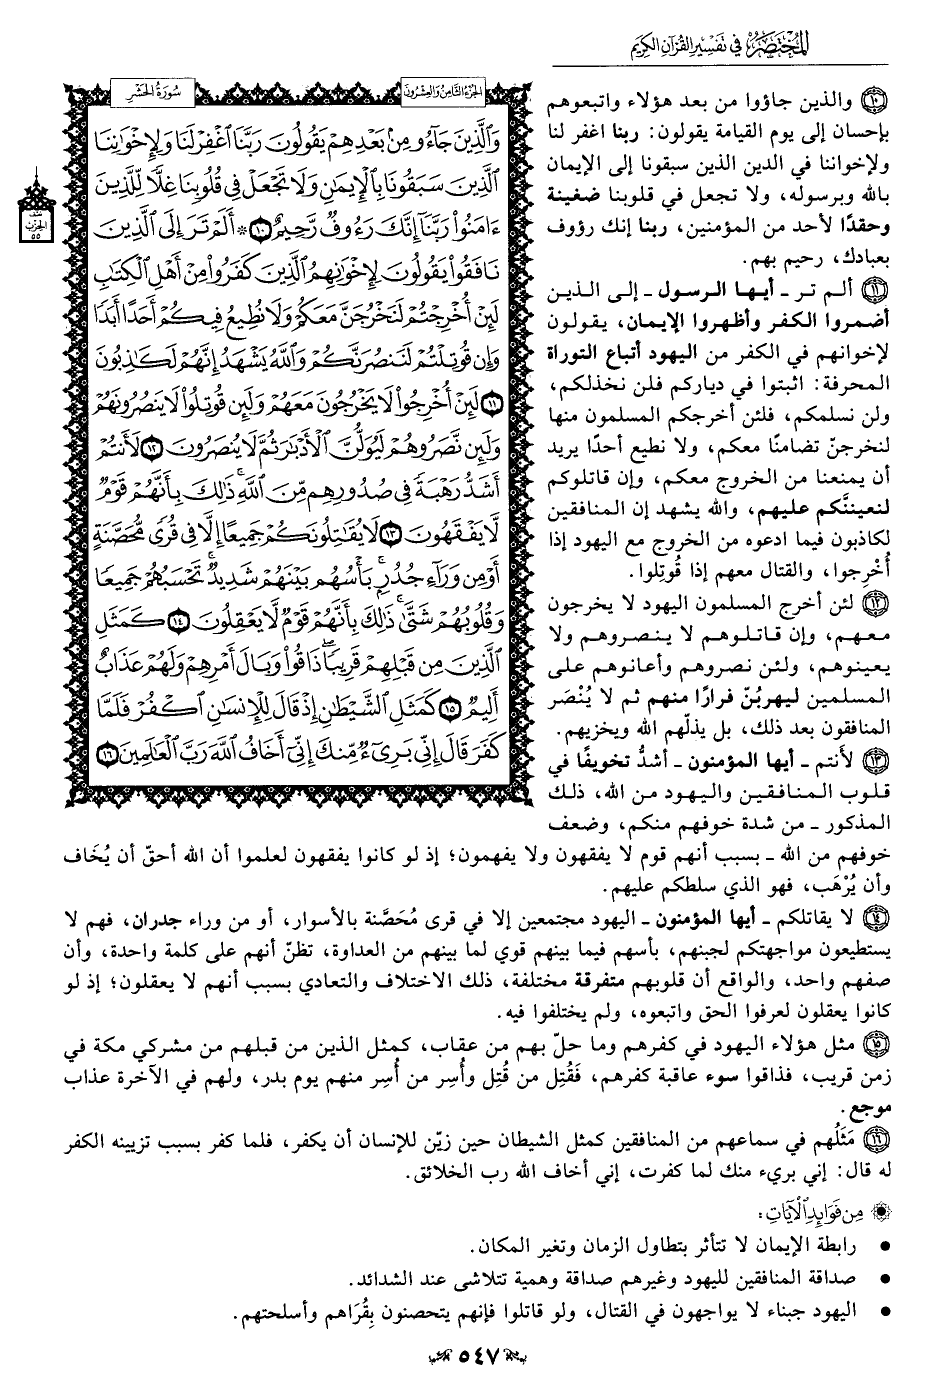 المختصر في تفسير القرآن الكريم
سورة الحشر
الجزء الثامن والعشرون
وَالَّذِينَ جَاءُو مِنْ بَعْدِهِمْ يَقُولُونَ رَبَّنَا اغْفِرْ لَنَا وَلِإِخْوَانِنَا
الَّذِينَ سَبَقُونَا بِالْإِيمَانِ وَلَا تَجْعَلْ فِي قُلُوبِنَا غِلًّا لِلَّذِينَ
ءَامَنُوا رَبَّنَا إِنَّكَ رَءُوفٌ رَحِيمٌ ١٠ * أَلَمْ تَرَ إِلَى الَّذِينَ
نَافَقُوا يَقُولُونَ لِإِخْوَانِهِمُ الَّذِينَ كَفَرُوا مِنْ أَهْلِ الْكِتَابِ
لَئِنْ أُخْرِجْتُمْ لَنَخْرُجَنَّ مَعَكُمْ وَلَا نُطِيعُ فِيكُمْ أَحَدًا أَبَدًا
وَإِن قُوتِلْتُمْ لَنَنصُرَنَّكُمْ وَاللَّهُ يَشْهَدُ إِنَّهُمْ لَكَاذِبُونَ
١١ لَئِنْ أُخْرِجُوا لَا يَخْرُجُونَ مَعَهُمْ وَلَئِن قُوتِلُوا لَا يَنصُرُونَهُمْ
وَلَئِن نَّصَرُوهُمْ لَيُوَلُّنَّ الْأَدْبَارَ ثُمَّ لَا يُنصَرُونَ ١٢ لَأَنتُمْ
أَشَدُّ رَهْبَةً فِي صُدُورِهِم مِّنَ اللَّهِ ذَلِكَ بِأَنَّهُمْ قَوْمٌ
لَّا يَفْقَهُونَ ١٣ لَا يُقَاتِلُونَكُمْ جَمِيعًا إِلَّا فِي قُرًى مُّحَصَّنَةٍ
أَوْ مِن وَرَاءِ جُدُرٍ بَأْسُهُم بَيْنَهُمْ شَدِيدٌ تَحْسَبُهُمْ جَمِيعًا
وَقُلُوبُهُمْ شَتَّى ذَلِكَ بِأَنَّهُمْ قَوْمٌ لَّا يَعْقِلُونَ ١٤ كَمَثَلِ
الَّذِينَ مِن قَبْلِهِمْ قَرِيبًا ذَاقُوا وَبَالَ أَمْرِهِمْ وَلَهُمْ عَذَابٌ
أَلِيمٌ ١٥ كَمَثَلِ الشَّيْطَانِ إِذْ قَالَ لِلْإِنسَانِ اكْفُرْ فَلَمَّا
كَفَرَ قَالَ إِنِّي بَرِيءٌ مِّنكَ إِنِّي أَخَافُ اللَّهَ رَبَّ الْعَالَمِينَ ١٦
نصف
الحزب
٥٥
١٠ والذين جاؤوا من بعد هؤلاء واتبعوهم
بإحسان إلى يوم القيامة يقولون: ربنا اغفر لنا
ولإخواننا في الدين الذين سبقونا إلى الإيمان
بالله وبرسوله، ولا تجعل في قلوبنا ضغينة
وحقدًا لأحد من المؤمنين، ربنا إنك رؤوف
بعبادك، رحيم بهم.
١١ ألم تر ـ أيها الرسول ـ إلى الذين
أضمروا الكفر وأظهروا الإيمان، يقولون
لإخوانهم في الكفر من اليهود أتباع التوراة
المحرفة: اثبتوا في دياركم فلن نخذلكم،
ولن نسلمكم، فلئن أخرجكم المسلمون منها
لنخرجنّ تضامنًا معكم، ولا نطيع أحدًا يريد
أن يمنعنا من الخروج معكم، وإن قاتلوكم
لنعيننَّكم عليهم، والله يشهد إن المنافقين
لكاذبون فيما ادعوه من الخروج مع اليهود إذا
أُخْرِجوا، والقتال معهم إذا قُوتِلوا.
١٢ لئن أخرج المسلمون اليهود لا يخرجون
معهم، وإن قاتلوهم لا ينصروهم ولا
يعينوهم، ولئن نصروهم وأعانوهم على
المسلمين ليهربُنّ فرارًا منهم ثم لا يُنْصَر
المنافقون بعد ذلك، بل يذلّهم الله ويخزيهم.
١٣ لأنتم ـ أيها المؤمنون ـ أشدُّ تخويفًا في
قلوب المنافقين واليهود من الله، ذلك
المذكور ـ من شدة خوفهم منكم، وضعف
خوفهم من الله ـ بسبب أنهم قوم لا يفقهون ولا يفهمون؛ إذ لو كانوا يفقهون لعلموا أن الله أحقّ أن يُخَاف
وأن يُرْهَب، فهو الذي سلطكم عليهم.
١٤ لا يقاتلكم ـ أيها المؤمنون ـ اليهود مجتمعين إلا في قرى مُحَصَّنة بالأسوار، أو من وراء جدران، فهم لا
يستطيعون مواجهتكم لجبنهم، بأسهم فيما بينهم قوي لما بينهم من العداوة، تظنّ أنهم على كلمة واحدة، وأن
صفهم واحد، والواقع أن قلوبهم متفرقة مختلفة، ذلك الاختلاف والتعادي بسبب أنهم لا يعقلون؛ إذ لو
كانوا يعقلون لعرفوا الحق واتبعوه، ولم يختلفوا فيه.
١٥ مثل هؤلاء اليهود في كفرهم وما حلّ بهم من عقاب، كمثل الذين من قبلهم من مشركي مكة في
زمن قريب، فذاقوا سوء عاقبة كفرهم، فَقُتِل من قُتِل وأُسِر من أُسِر منهم يوم بدر، ولهم في الآخرة عذاب
موجع.
١٦ مَثَلُهم في سماعهم من المنافقين كمثل الشيطان حين زيّن للإنسان أن يكفر، فلما كفر بسبب تزيينه الكفر
له قال: إني بريء منك لما كفرت، إني أخاف الله رب الخلائق.
من فوائد الآيات:
• رابطة الإيمان لا تتأثر بتطاول الزمان وتغير المكان.
• صداقة المنافقين لليهود وغيرهم صداقة وهمية تتلاشى عند الشدائد.
• اليهود جبناء لا يواجهون في القتال، ولو قاتلوا فإنهم يتحصنون بِقُرَاهم وأسلحتهم.
٥٤٧